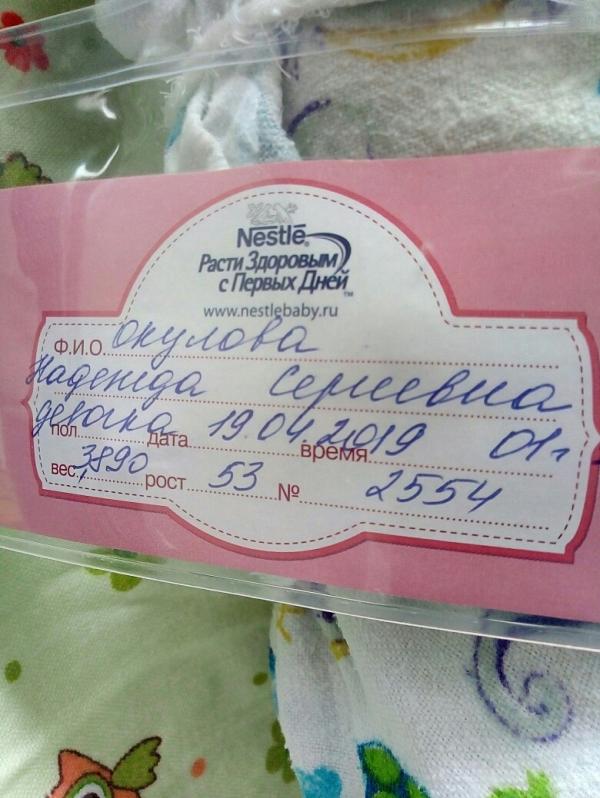 Nestlé®
Расти Здоровым
с Первых Дней™
www.nestlebaby.ru
Ф.И.О. Окулова
Надежда Сергеевна
пол девочка дата 19.04.2019 время 01
вес 3,890 рост 53 № 2554